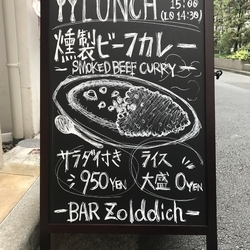 LUNCH 15:00
(LO 14:30)
燻製ビーフカレー
- SMOKED BEEF CURRY -
サラダ付き ライス
950YEN 大盛 0YEN
- BAR Zolddich -